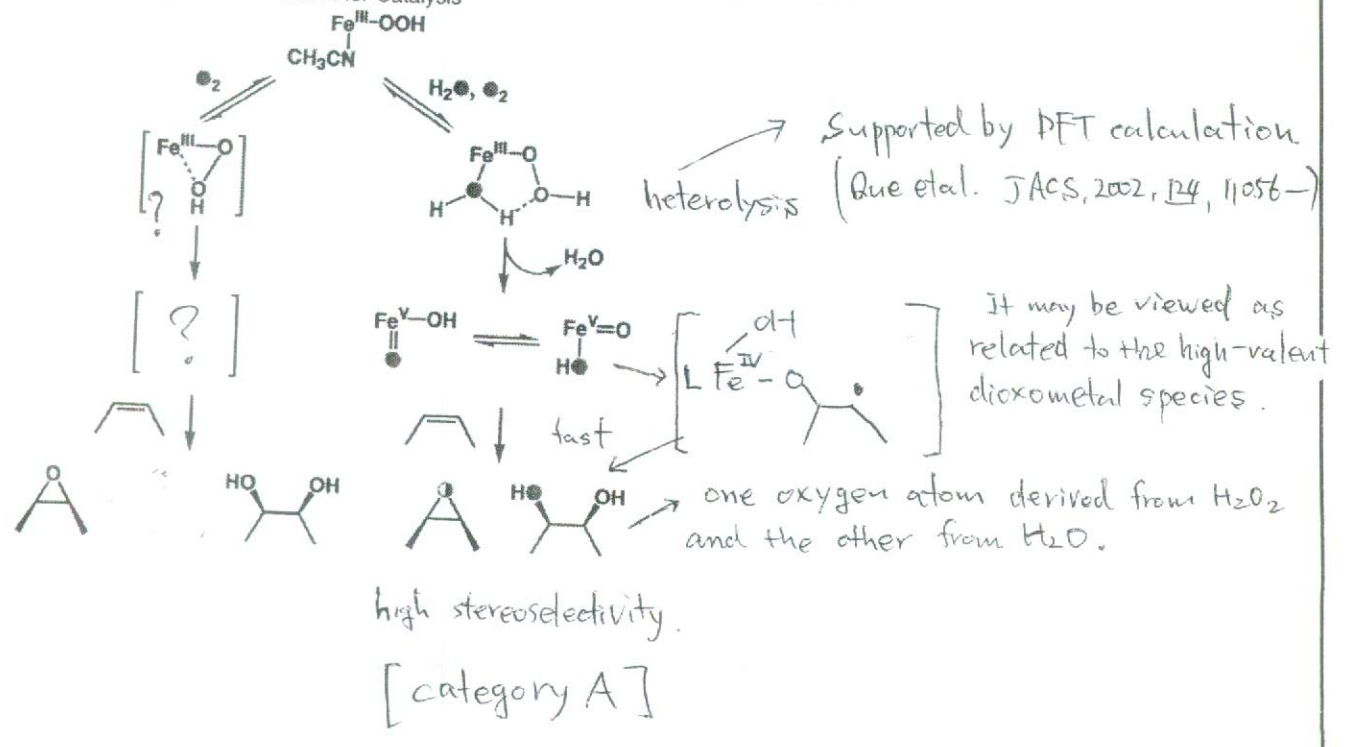 Fe^III-OOH
CH3CN
●2
H2●, ●2
Fe^III-O
O
H
?
Fe^III-O
O-H
H
H
heterolysis
Supported by DFT calculation.
(Que et al. JACS, 2002, 124, 11056-)
H2O
?
Fe^V-OH
Fe^V=O
H●
OH
L Fe^IV-O
It may be viewed as
related to the high-valent
dioxometal species.
fast
O
HO
OH
H●
OH
one oxygen atom derived from H2O2
and the other from H2O.
high stereoselectivity.
[category A]